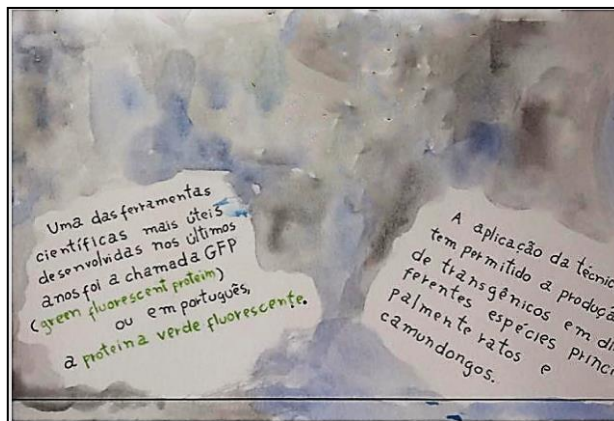 Uma das ferramentas
científicas mais úteis
desenvolvidas nos últimos
anos foi a chamada GFP
(green fluorescent proteim)
ou em português,
a proteína verde fluorescente.
A aplicação da técnic
tem permitido a produçã
de transgênicos em di
ferentes espécies princi
palmente ratos e
camundongos.